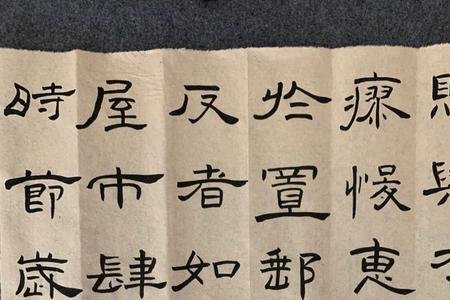 瘳悛惠
於置郵
反者如
屋市肆
時節歲